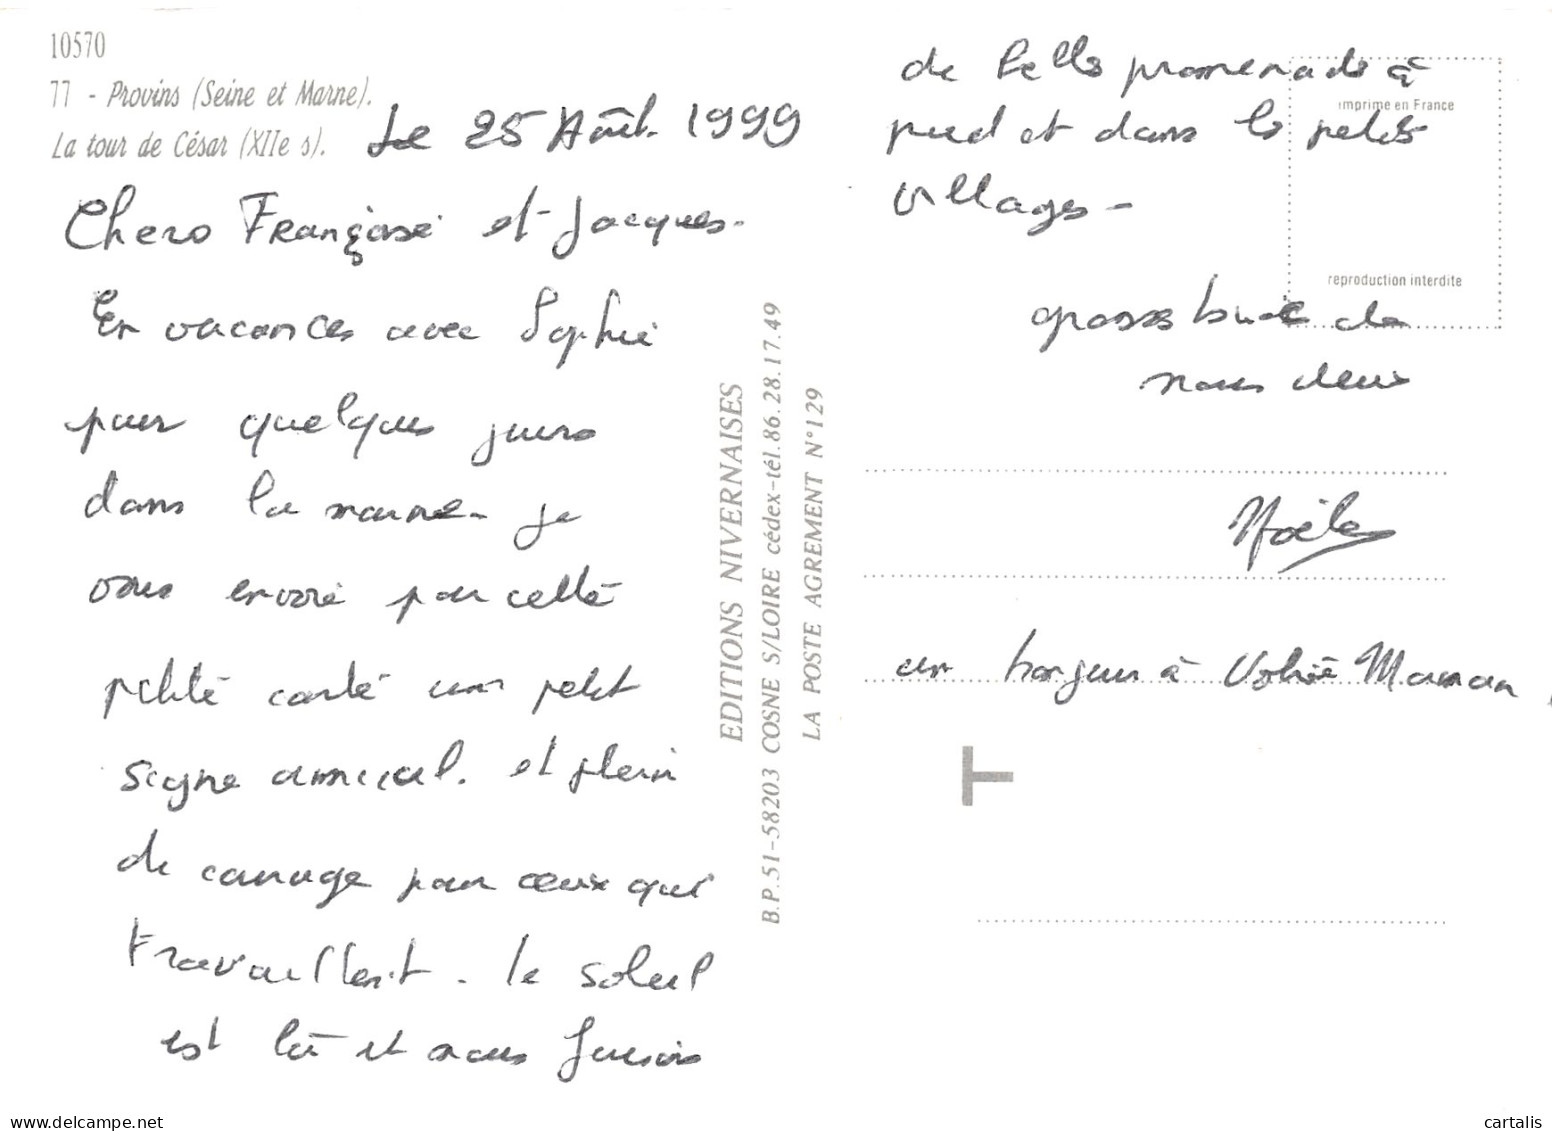 10570
77 - Provins (Seine et Marne).
La tour de César (XIIe s).
Le 25 Août 1999
Chers Françoise et Jacques.
En vacances avec Sophie
pour quelques jours
dans la marne. je
vous envoie par cette
petite carte un petit
signe amical. et plein
de courage pour ceux qui
travaillent. le soleil
est là et nous faisons
EDITIONS NIVERNAISES
B.P.51-58203 COSNE S/LOIRE cédex-tél.86.28.17.49
LA POSTE AGREMENT N°129
de belles promenades à
pied et dans les petits
villages -
imprimé en France
reproduction interdite
grosses bises de
nous deux
Noëlle
un bonjour à Votre Maman
delcampe.net
cartalis